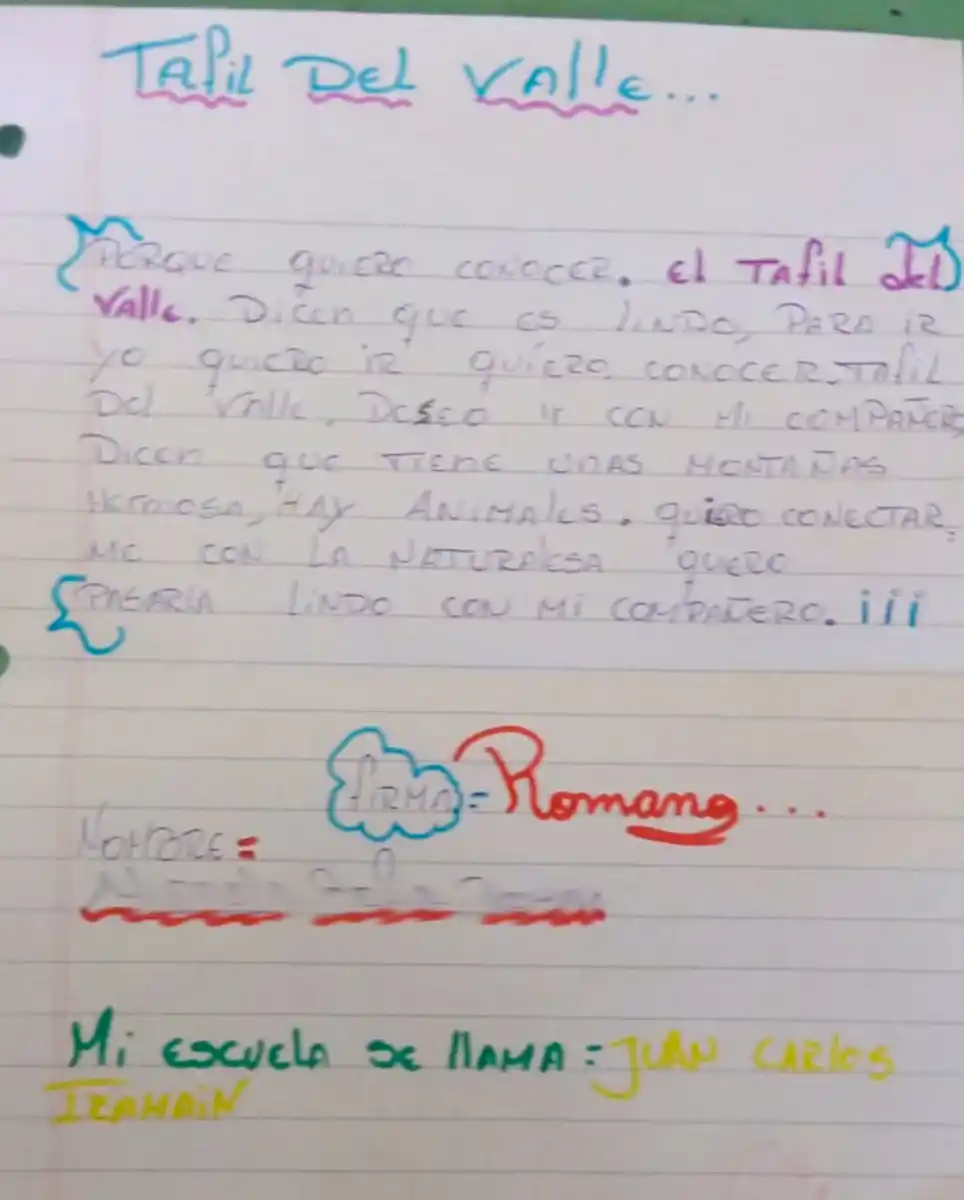 Tafil Del Valle...
PORQUE quiero conocer. El Tafil del
Valle. Dicen que es lindo, para ir
yo quiero ir quiero conocer. Tafil
Del Valle. Deseo ir con Mi compañero
Dicen que tiene unas montañas
Hermosa, Hay Animales. quiero conectar-
me con la naturalesa quero
pasarla lindo con mi compañero. ¡¡¡
firma = Romano...
Nombre =
Mi escuela se llama = Juan Carlos
Iramain